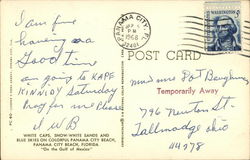 I am fine
having a a
Good time
am going to KAPE
KINNIDY Saturday
Pray for me Please
I W B
WHITE CAPS, SNOW-WHITE SANDS AND
BLUE SKIES ON COLORFUL PANAMA CITY BEACH,
PANAMA CITY BEACH, FLORIDA
"On the Gulf of Mexico"
PANAMA CITY, FL
1968
32401
WASHINGTON
POST CARD
mr & mrs
Temporarily Away
796 Newton St
Tallmadge Ohio
44278